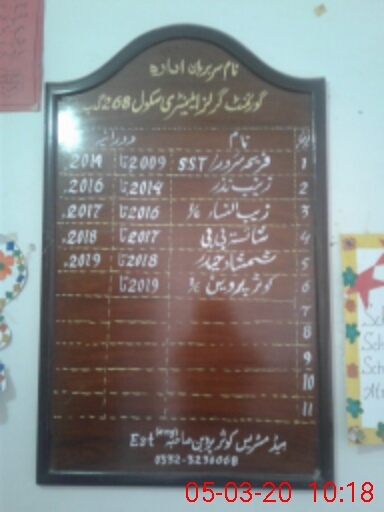 نام سربراہان ادارہ
گورنمنٹ گرلز ایلیمنٹری سکول 268 گ ب
نام دورانیہ
1 SST 2009 تا 2014ء
2 زینب نذر 2014 تا 2016ء
3 زیب النساء 2016 تا 2017ء
4 شائستہ بی بی 2017 تا 2018ء
5 شمشاد حیدر 2018 تا 2019ء
6 کوثر پروین 2019 تا
7
8
9
10
11
ہیڈ مسٹریس کوثر پروین صاحبہ Est
05-03-20 10:18